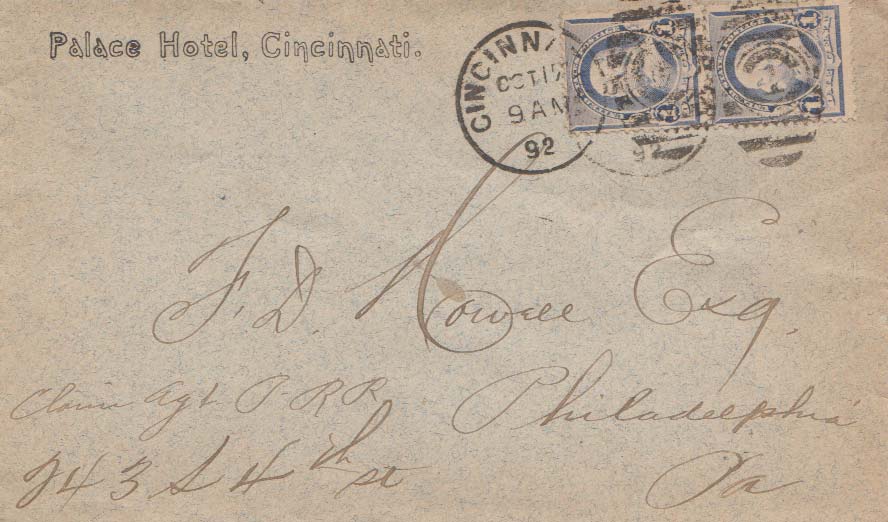 Palace Hotel, Cincinnati.
CINCINNA
OCT 17
9 AM
92
1
1
92
F. D. Howell Esq.
Claim Agt P. R R
Philadelphia
243 S 4th st
Pa